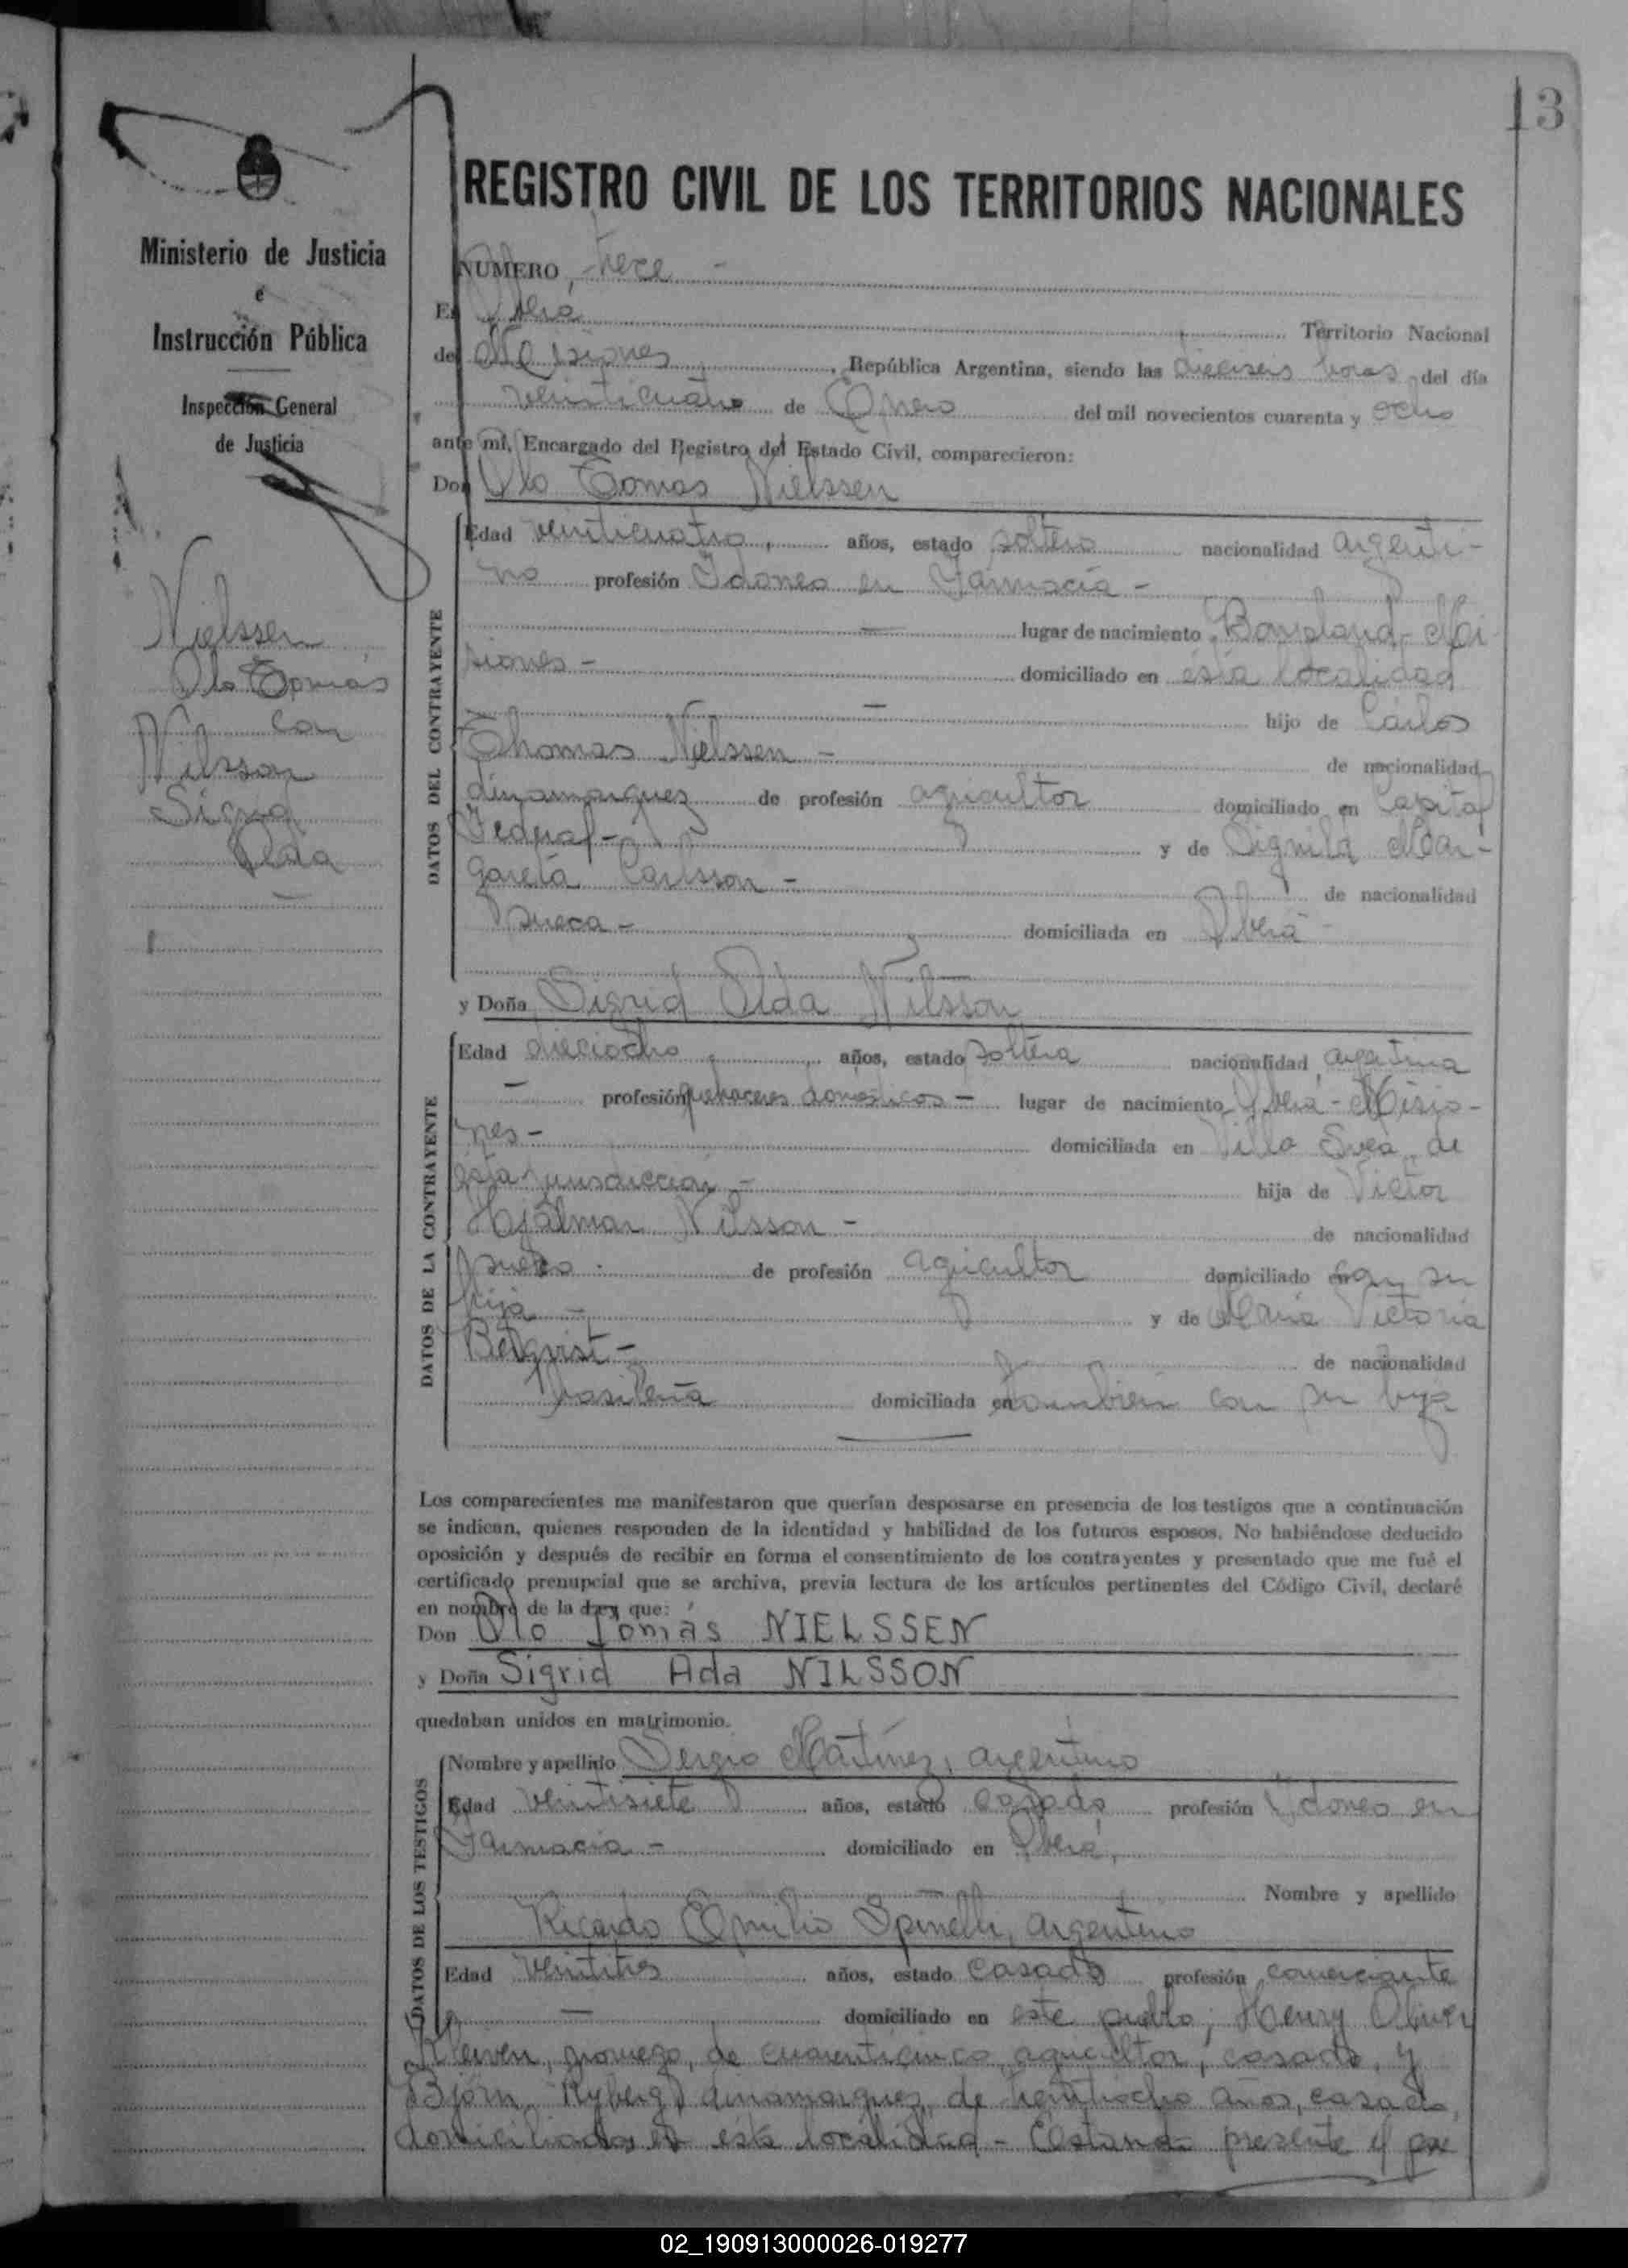 13
Ministerio de Justicia
é
Instrucción Pública
Inspección General
de Justicia
Nielssen
Olo Tomás
con
Nilsson
Sigrid
Ada
REGISTRO CIVIL DE LOS TERRITORIOS NACIONALES
NUMERO, trece -
En Oberá Territorio Nacional
de Misiones, República Argentina, siendo las dieciseis horas del día
veinticuatro de Enero del mil novecientos cuarenta y ocho
ante mí, Encargado del Registro del Estado Civil, comparecieron:
Don Olo Tomas Nielssen
DATOS DEL CONTRAYENTE
Edad veinticuatro, años, estado soltero nacionalidad argenti-
no profesión Idoneo en Farmacia -
lugar de nacimiento Bonpland - Mi
siones - domiciliado en ésta localidad
— hijo de Carlos
Thomas Nielssen - de nacionalidad
dinamarquez de profesión agricultor domiciliado en Capital
Federal - y de Signila Mar-
gareta Carlsson - de nacionalidad
sueca - domiciliada en Oberá -
y Doña Sigrid Ada Nilsson
DATOS DE LA CONTRAYENTE
Edad dieciocho, años, estado soltera nacionalidad argentina
— profesión quehaceres domésticos - lugar de nacimiento Oberá - Misio-
nes - domiciliada en Villa Svea, de
ésta jurisdicción - hija de Victor
Hjalmar Nilsson - de nacionalidad
sueco - de profesión agricultor domiciliado en con su
hija - y de Maria Victoria
Bergvist - de nacionalidad
brasileña domiciliada en también con su hija
Los comparecientes me manifestaron que querían desposarse en presencia de los testigos que a continuación
se indican, quienes responden de la identidad y habilidad de los futuros esposos. No habiéndose deducido
oposición y después de recibir en forma el consentimiento de los contrayentes y presentado que me fué el
certificado prenupcial que se archiva, previa lectura de los artículos pertinentes del Código Civil, declaré
en nombre de la Ley que:
Don Olo Tomás NIELSSEN
y Doña Sigrid Ada NILSSON
quedaban unidos en matrimonio.
DATOS DE LOS TESTIGOS
Nombre y apellido Sergio Martínez, argentino
Edad veintisiete años, estado casado profesión Idoneo en
Farmacia - domiciliado en Oberá,
Nombre y apellido
Ricardo Emilio Spinelli, argentino
Edad veintitres años, estado casado profesión comerciante
— domiciliado en este pueblo; Henry Oliver
Kleiven, noruego, de cuarenticinco, agricultor, casado, y
Björn Ryberg, dinamarquez, de treintiocho años, casado,
domiciliados en esta localidad - Estando presente el pa
02_190913000026-019277